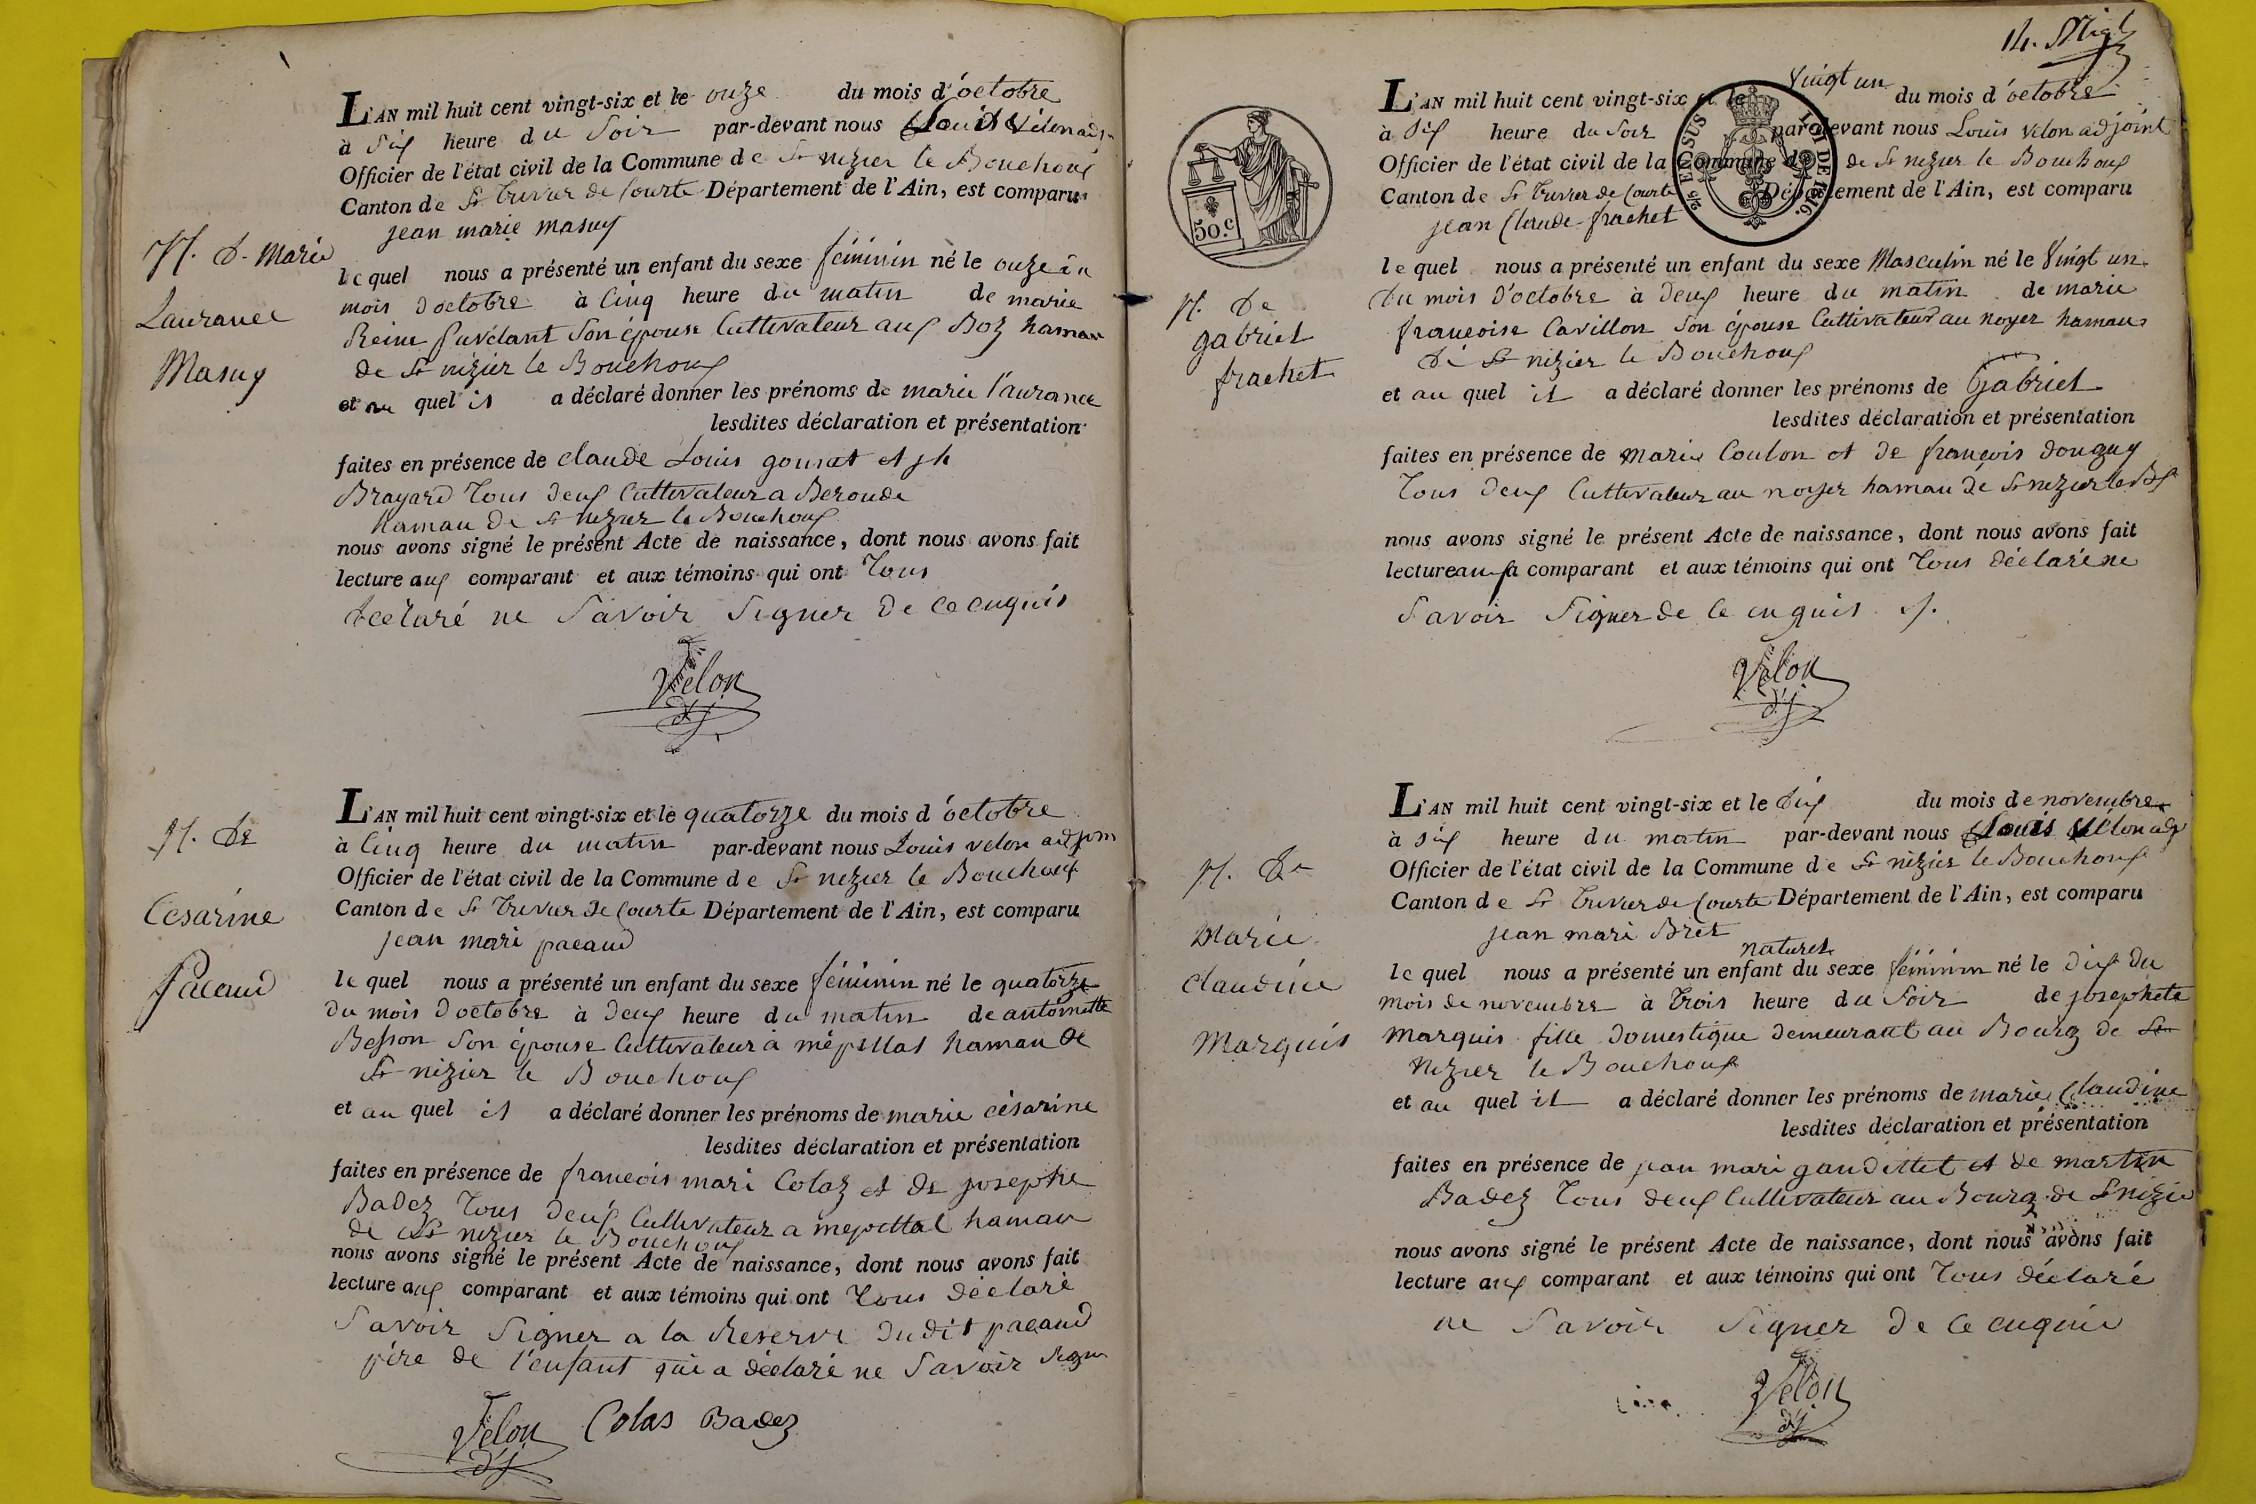 L'AN mil huit cent vingt-six et le onze du mois d'octobre
à six heure du soir par-devant nous Louis Velon adj
Officier de l'état civil de la Commune de St nizier le Bouchoux
Canton de St Trivier de Courte Département de l'Ain, est comparu
jean marie masuy
N. d. Marie
Laurance
Masuy
le quel nous a présenté un enfant du sexe féminin né le onze du
mois d'octobre à cinq heure du matin de marie
Reine son épouse Cultivateur aux Boz hamau
de St nizier le Bouchoux
et au quel il a déclaré donner les prénoms de marie l'aurance
lesdites déclaration et présentation
faites en présence de claude Louis gourat et jh
Brayard Tous deux Cultivateur a Beroude
hamau de St nizier le Bouchoux
nous avons signé le présent Acte de naissance, dont nous avons fait
lecture aux comparant et aux témoins qui ont Tous
déclaré ne Savoir Signer de ce enquis
Velon
dj
L'AN mil huit cent vingt-six et le quatorze du mois d'octobre
à Cinq heure du matin par-devant nous Louis velon adjoin
Officier de l'état civil de la Commune de St nezier le Bouchoux
Canton de St Trivier de Courte Département de l'Ain, est comparu
jean mari pacaud
N. de
Cesarine
Pacaud
le quel nous a présenté un enfant du sexe féminin né le quatorze
du mois d'octobre à deux heure du matin de antoinette
Besson Son épouse Cultivateur à mépillat hamau de
St nizier le Bouchoux
et au quel il a déclaré donner les prénoms de marie césarine
lesdites déclaration et présentation
faites en présence de francois mari Colaz et de josephe
Badez Tous deux Cultivateur a mepillat hamau
de St nezier le Bouchoux
nous avons signé le présent Acte de naissance, dont nous avons fait
lecture aux comparant et aux témoins qui ont Tous déclaré
Savoir Signer a la Reserve dudit pacaud
père de l'enfant qui a déclaré ne Savoir Signer
Velon Colas Badez
dj
14.
L'AN mil huit cent vingt-six et le vingt un du mois d'octobre
à six heure du soir par-devant nous Louis velon adjoint
Officier de l'état civil de la Commune de de St nezier le Bouchoux
Canton de St Trivier de Courte Département de l'Ain, est comparu
jean Claude frachet
50.c
2/5 EN SUS LOI DE 1816
N. de
gabriel
frachet
le quel nous a présenté un enfant du sexe Masculin né le Vingt un
du mois d'octobre à deux heure du matin de marie
francoise Cavillon Son épouse Cultivateur au noyer hamau
de St nizier le Bouchoux
et au quel il a déclaré donner les prénoms de Gabriel
lesdites déclaration et présentation
faites en présence de marie Coulon et de francois donguy
Tous deux Cultivateur au noyer hamau de St nezier le Bx
nous avons signé le présent Acte de naissance, dont nous avons fait
lecture aux comparant et aux témoins qui ont Tous déclaré ne
Savoir Signer de ce enquis
Velon
dj
L'AN mil huit cent vingt-six et le dix du mois de novembre
à six heure du matin par-devant nous Louis Velon adj
Officier de l'état civil de la Commune de St nizier le Bouchoux
Canton de St Trivier de Courte Département de l'Ain, est comparu
jean mari Bret
naturel
N. de
Marie
claudine
Marquis
le quel nous a présenté un enfant du sexe féminin né le dix du
mois de novembre à Trois heure du Soir de josephete
marquis fille domestique demeurant au Bourg de St
nezier le Bouchoux
et au quel il a déclaré donner les prénoms de marie Claudine
lesdites déclaration et présentation
faites en présence de jean mari gandillet et de martin
Badez Tous deux Cultivateur au Bourg de St nizie
nous avons signé le présent Acte de naissance, dont nous avons fait
lecture aux comparant et aux témoins qui ont Tous déclaré
ne Savoir Signer de ce enquis
Velon
dj